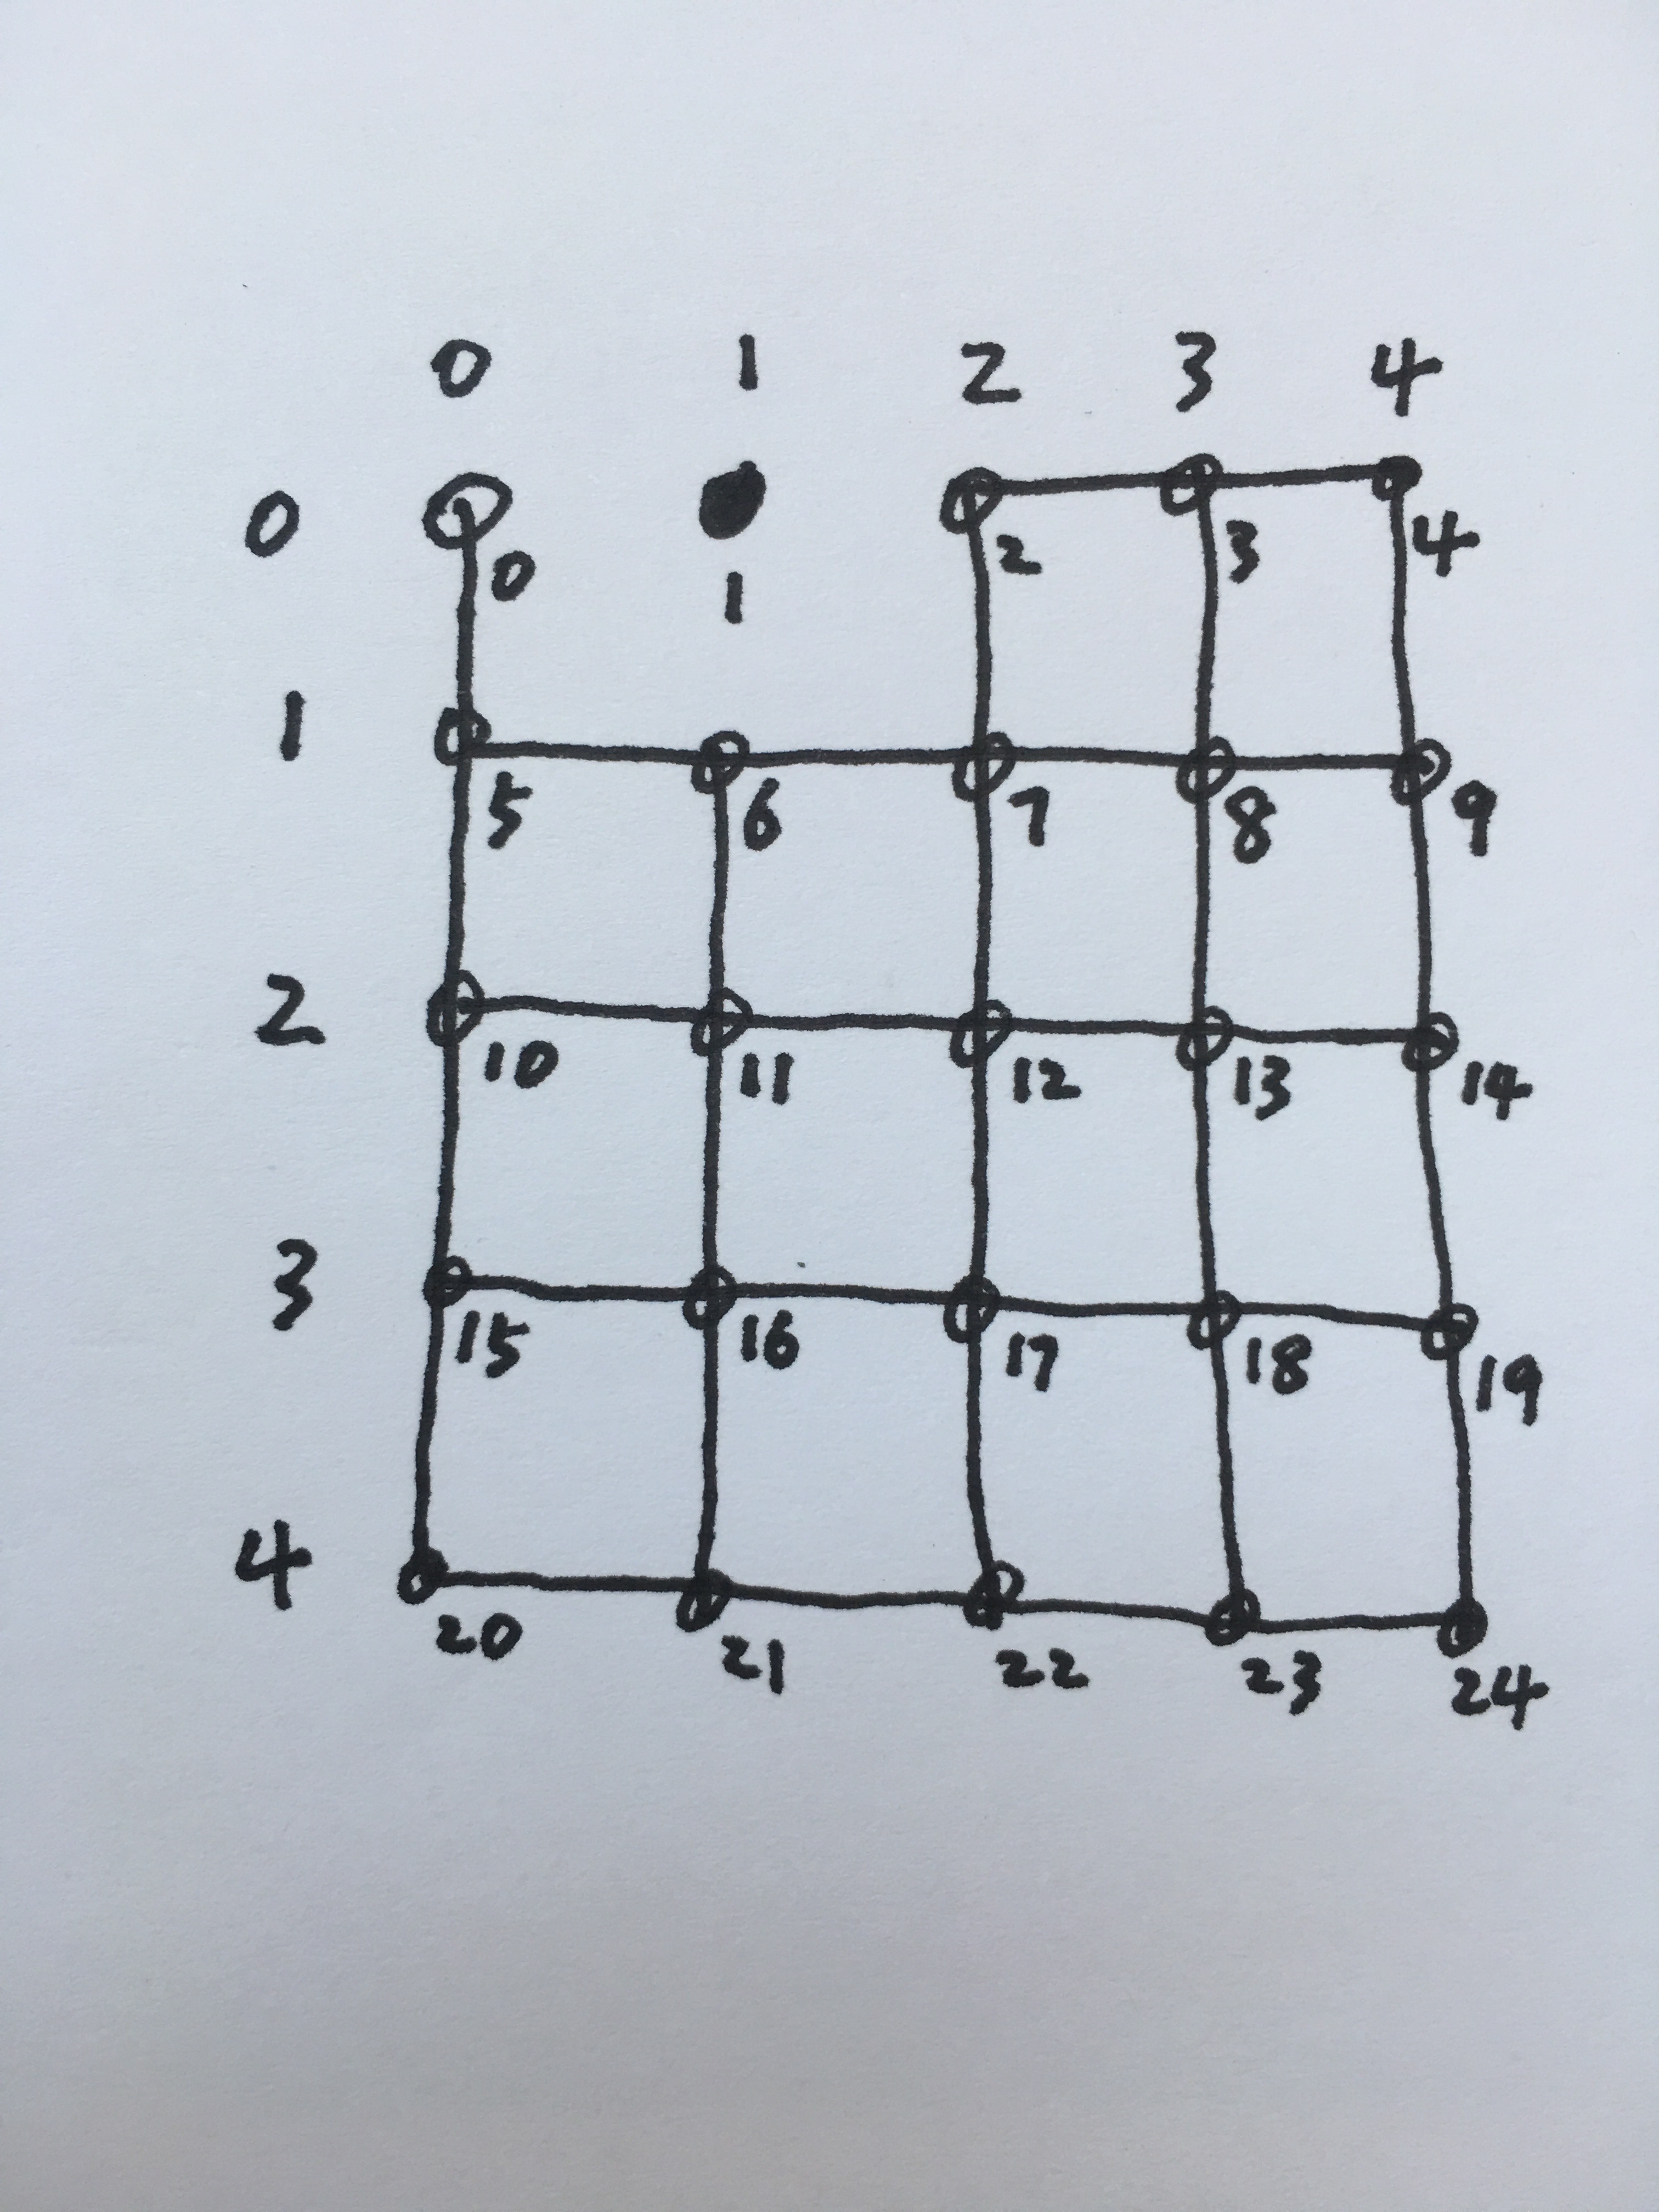 0 1 2 3 4
0
0 1 2 3 4
1
5 6 7 8 9
2
10 11 12 13 14
3
15 16 17 18 19
4
20 21 22 23 24